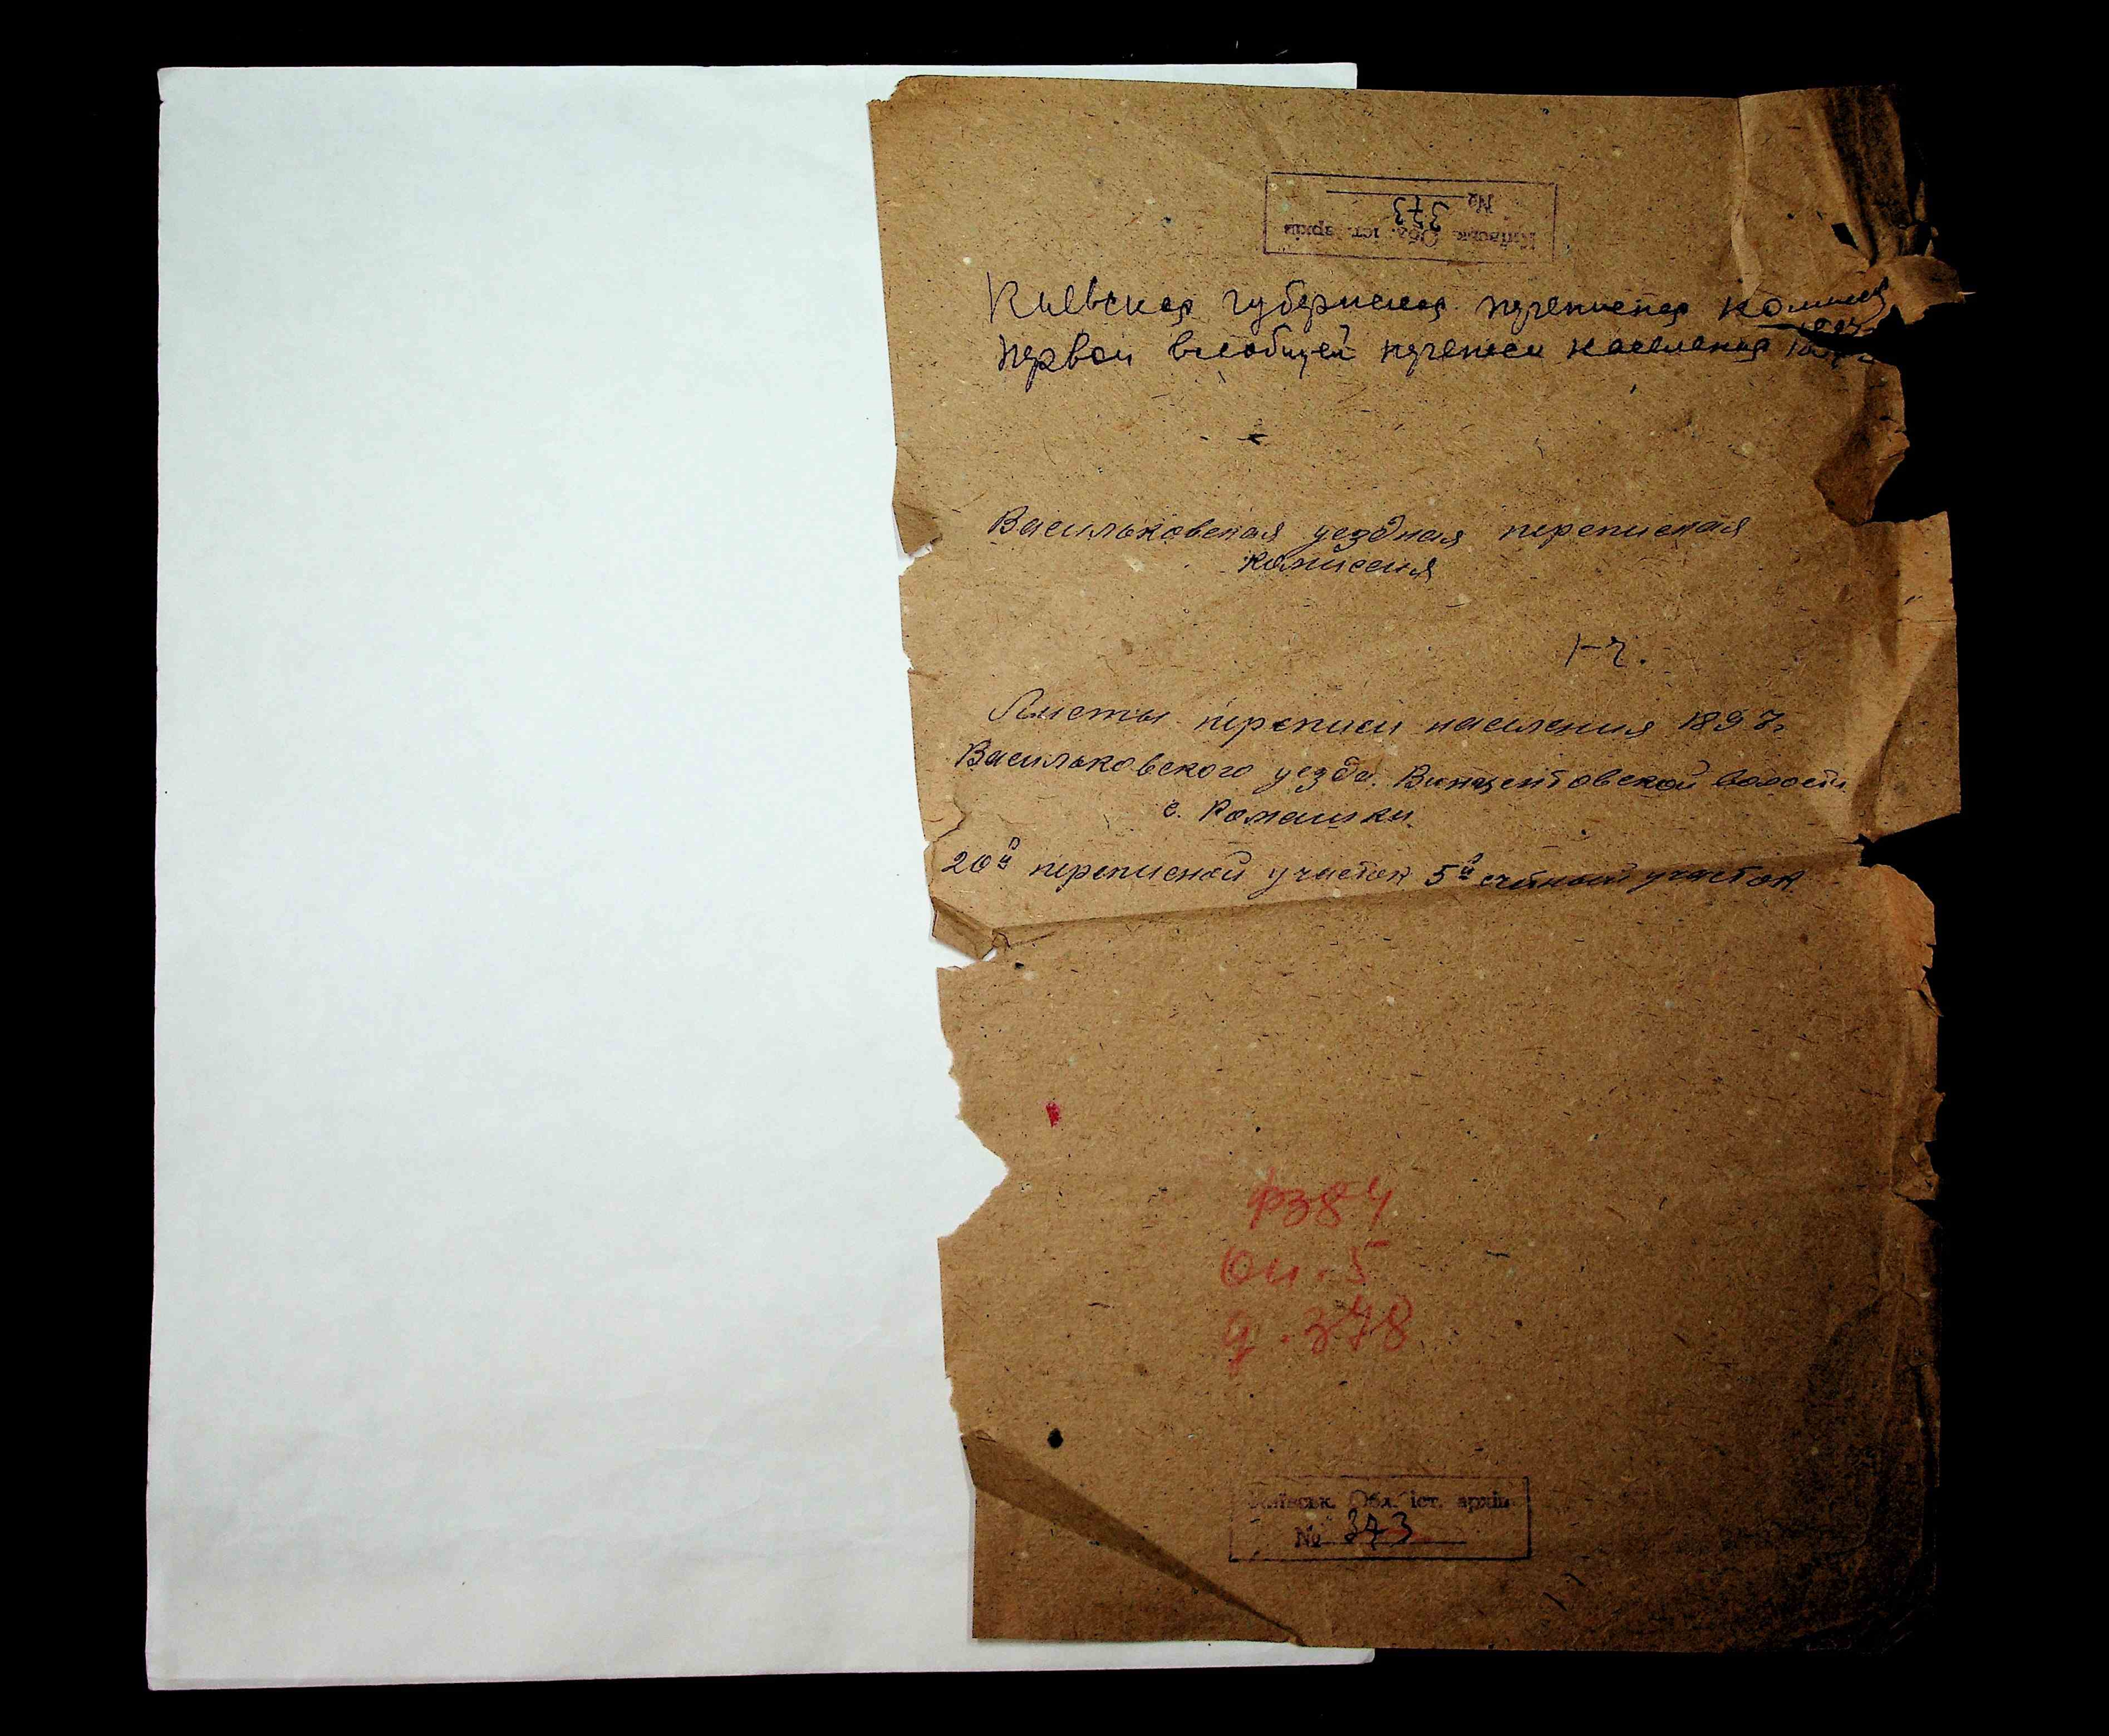 Київськ. Обл. іст. архів
№ 373
Киевская губернская переписная комисся
первой всеобщей переписи населения 1897 г
Васильковская уездная переписная
комиссия
1-ч.
Листы переписи населения 1897г.
Васильковского уезда. Винцентовской волости
с. Ромашки
20й переписной участок 5й счётный участок.
ф384
оп. 5
д. 378
Київськ. Обл. іст. архів
№ 373